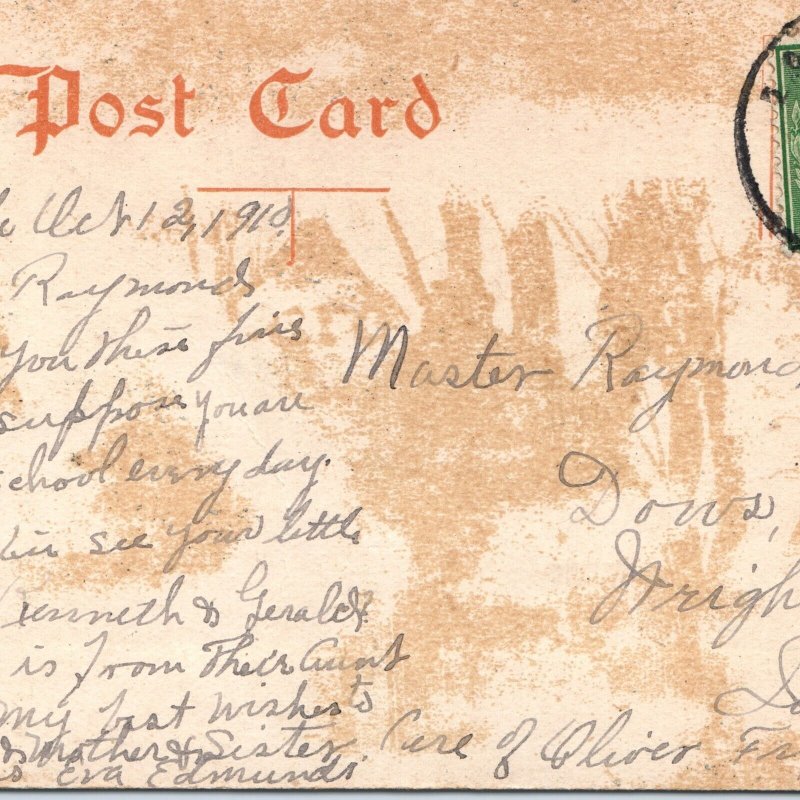 Post Card
Oct 12, 1910
Raymond
you these fine
suppose you are
school every day.
see your little
Kenneth & Gerald
is from their Aunt
My best wishes to
Mother & Sister
Eva Edmunds
Master Raymond
Dows,
Wrigh
Care of Oliver